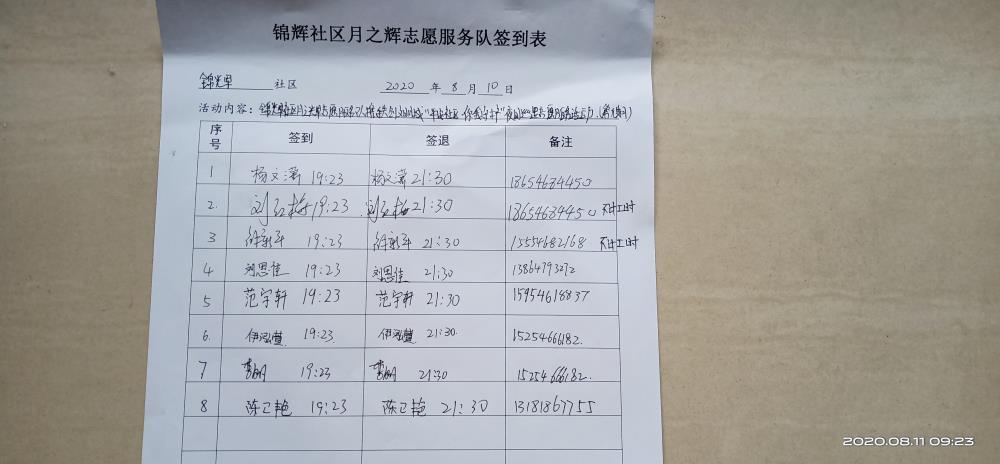 锦辉社区月之辉志愿服务队签到表
锦辉 社区 2020 年 8 月 10 日
活动内容：
序号 签到 签退 备注
1 杨文潇 19:23 杨文潇 21:30 18654684450
2. 刘红梅 19:23 刘红梅 21:30 18654684450 不计工时
3 19:23 21:30 15554682168 不计工时
4 刘思佳 19:23 刘思佳 21:30 13864793272
5 范宇轩 19:23 范宇轩 21:30 15954618837
6. 伊泓萱 19:23 伊泓萱 21:30. 15254666182.
7 19:23 21:30 15254666182.
8 陈卫艳 19:23 陈卫艳 21:30 13181867755
2020.08.11 09:23